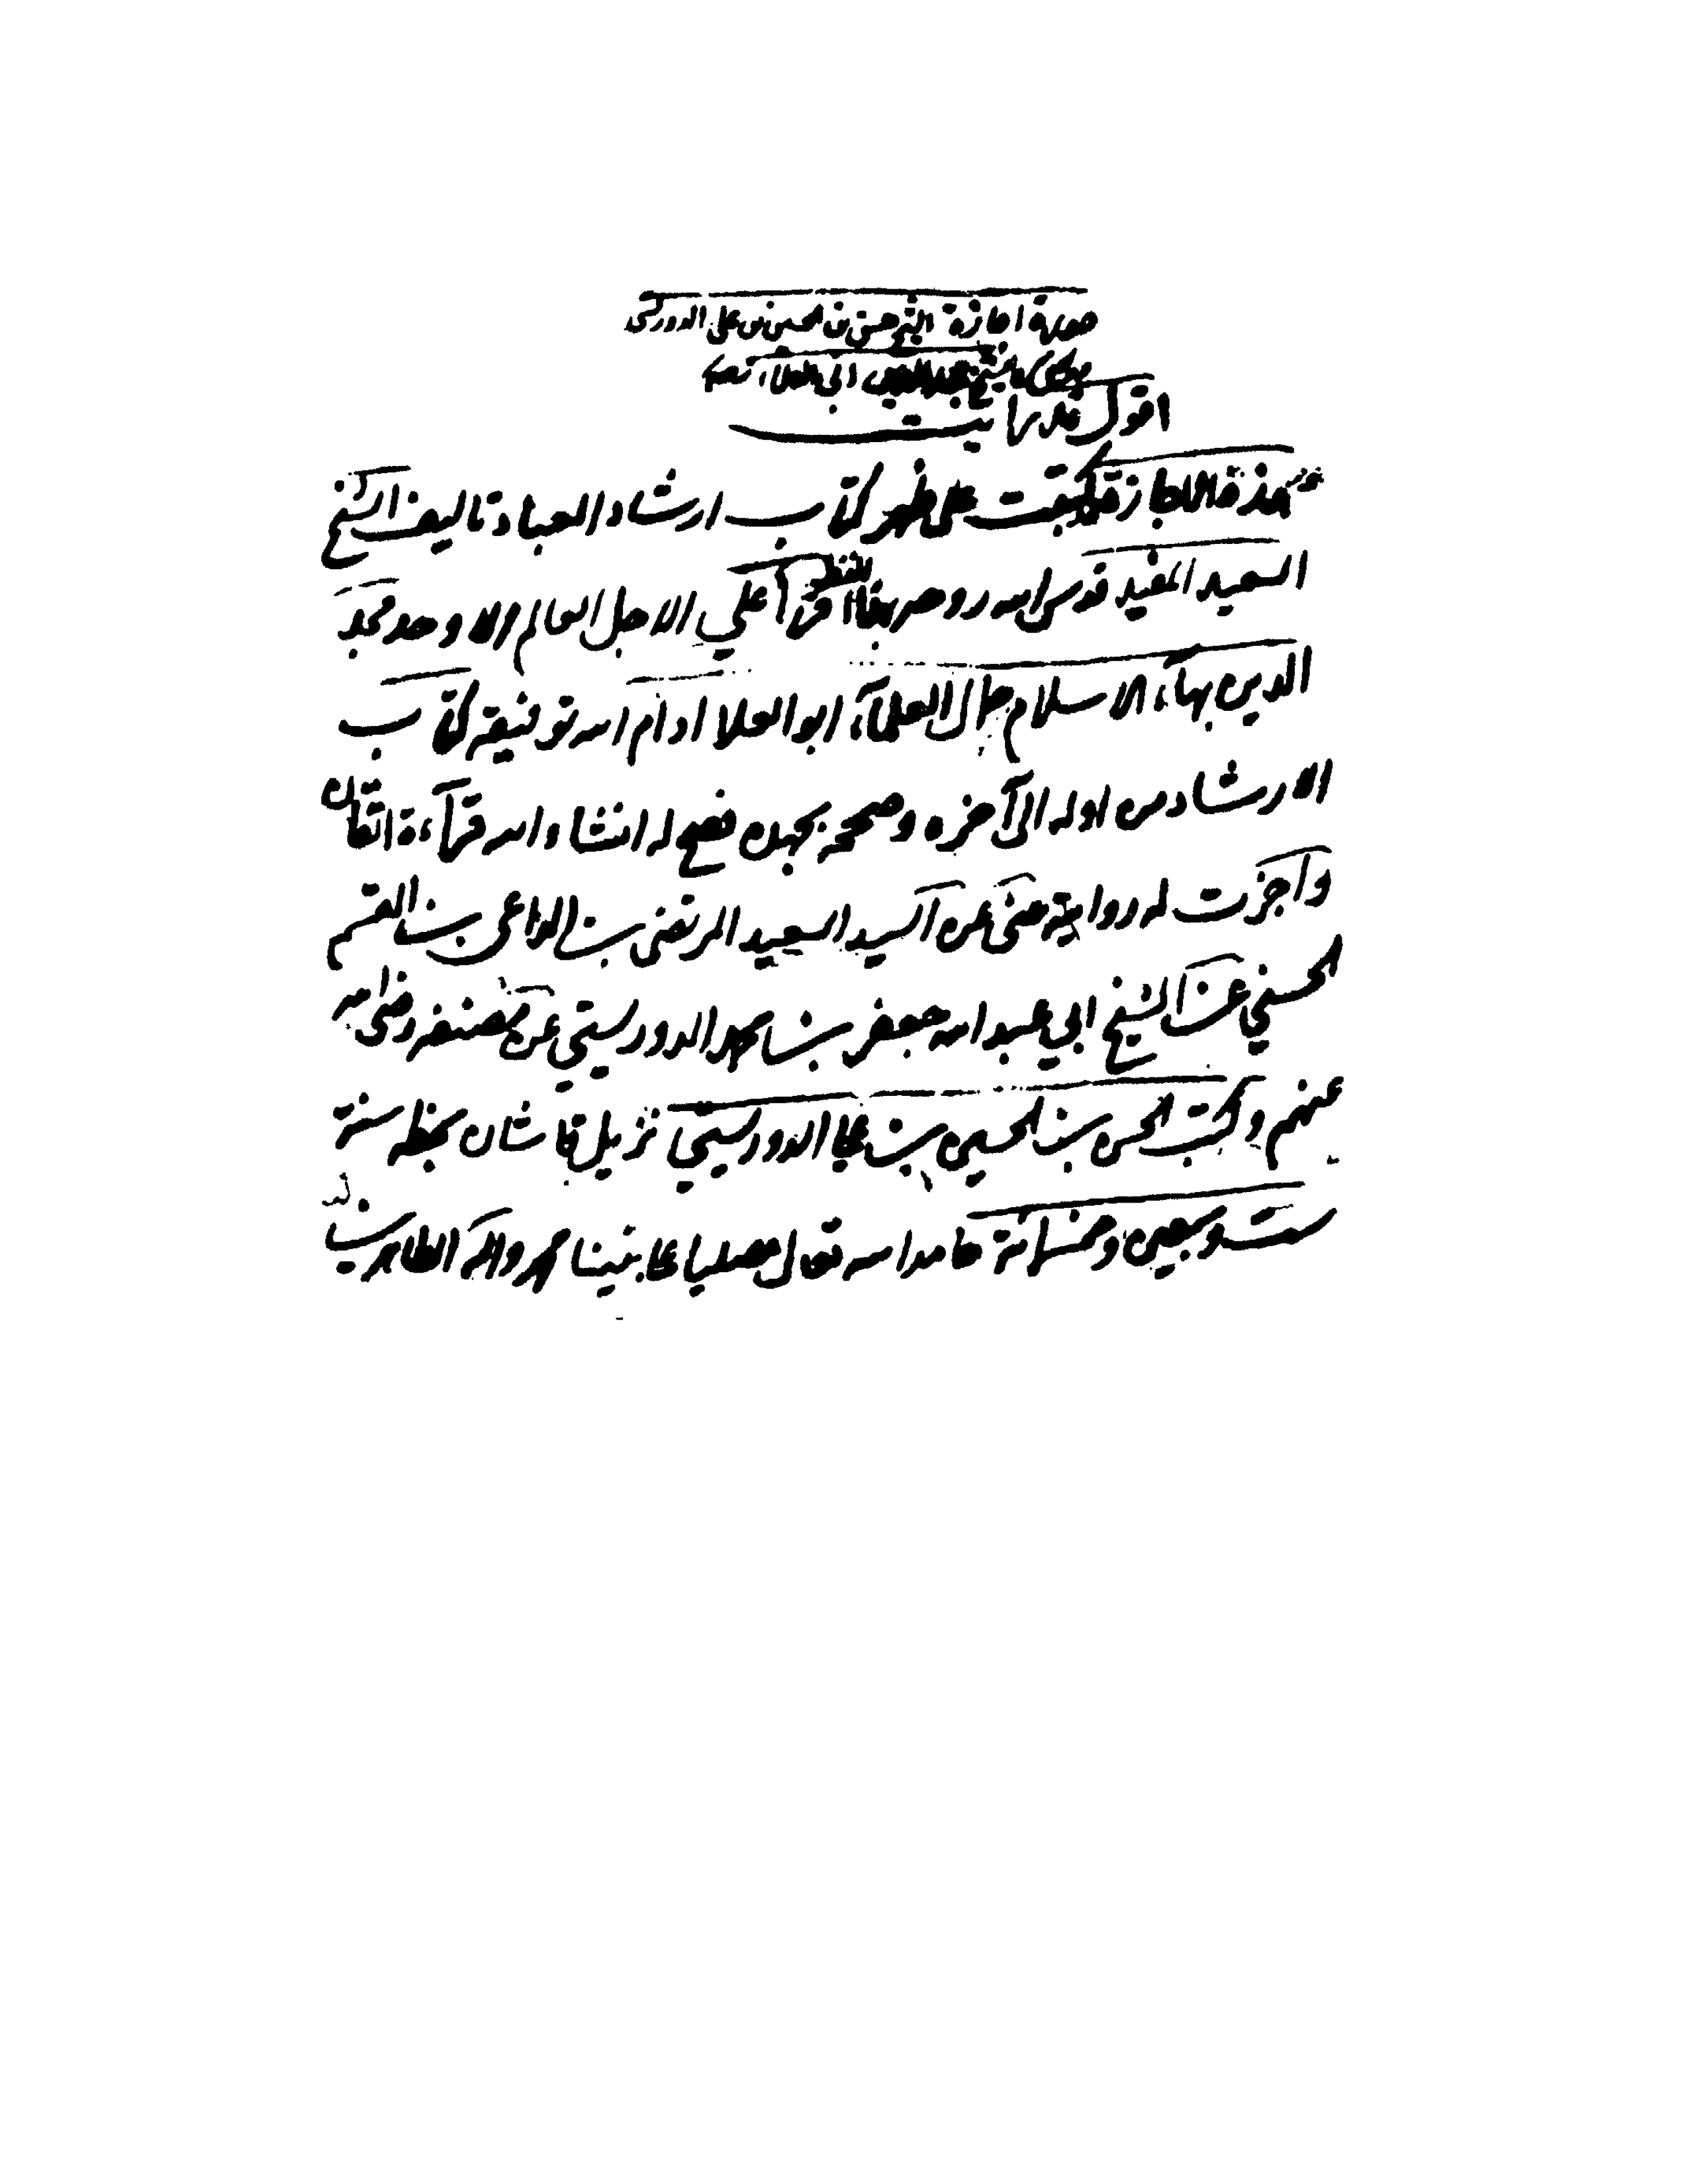 صورة اجازة الشيخ حسن بن الحسين بن علي الدوريستي
للشيخ مجد الدين ابي العلاء
اقول قد رايت
هذه الاجازة كتبت على ظهر كتاب ارشاد العباد تاليف الشيخ
السعيد المفيد قدس الله روحه بهذا اللفظ قرأ علي الاجل العالم الاوحد مجد
الدين بهاء الاسلام جمال العلماء ابو العلا ادام الله توفيقه كتاب
الارشاد من اوله الى آخره وصححه بجهده فصح له انشاء الله قرآءة اتقان
واجزت له روايته عني عن السيد السعيد المرتضى بن الداعي بن القسم
الحسني عن الشيخ ابي عبد الله جعفر بن محمد الدوريستي عن مصنفه رضى الله
عنهم وكتب الحسن بن الحسين بن علي الدوريستي نزيل قاشان بخطه سنة
ست وسبعين وخمسمائة حامدا لله تعالى مصليا على نبينا محمد واله الطاهرين